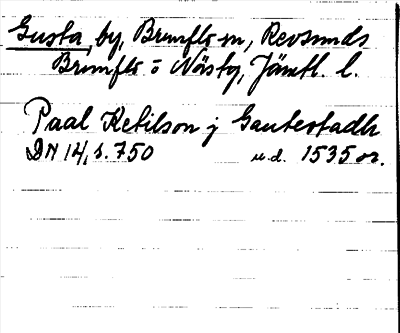 Gusta, by, Brunflo sn, Revsunds
Brunflo o Näsby, Jämtl. l.
Paal Ketilson j Gautestadh
DN 14, s. 750 u.d. 1535 or.